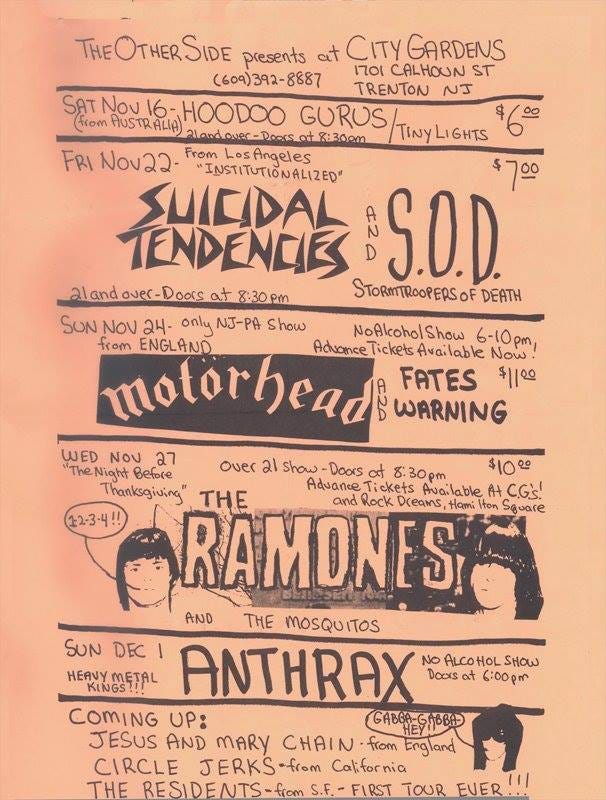 THE OTHER SIDE presents at CITY GARDENS
(609) 392-8887 1701 CALHOUN ST
TRENTON NJ
SAT NOV 16 - HOODOO GURUS / TINY LIGHTS $6.00
(from AUSTRALIA) 21 and over - Doors at 8:30pm
FRI NOV 22 - From Los Angeles $7.00
"INSTITUTIONALIZED"
SUICIDAL TENDENCIES
AND
S.O.D.
STORMTROOPERS OF DEATH
21 and over - Doors at 8:30 pm
SUN NOV 24 - only NJ-PA Show
from ENGLAND
No Alcohol Show 6-10pm!
Advance Tickets Available Now!
motörhead
AND
FATES WARNING
$11.00
WED NOV 27
"The Night Before
Thanksgiving"
Over 21 show - Doors at 8:30pm $10.00
Advance Tickets Available At CG's!
and Rock Dreams, Hamilton Square
1-2-3-4!!
THE
RAMONES
AND THE MOSQUITOS
SUN DEC 1
HEAVY METAL
KINGS!!!
ANTHRAX
NO ALCOHOL SHOW
Doors at 6:00pm
COMING UP:
GABBA-GABBA-
HEY!!
JESUS AND MARY CHAIN - from England
CIRCLE JERKS - from California
THE RESIDENTS - from S.F. - FIRST TOUR EVER!!!